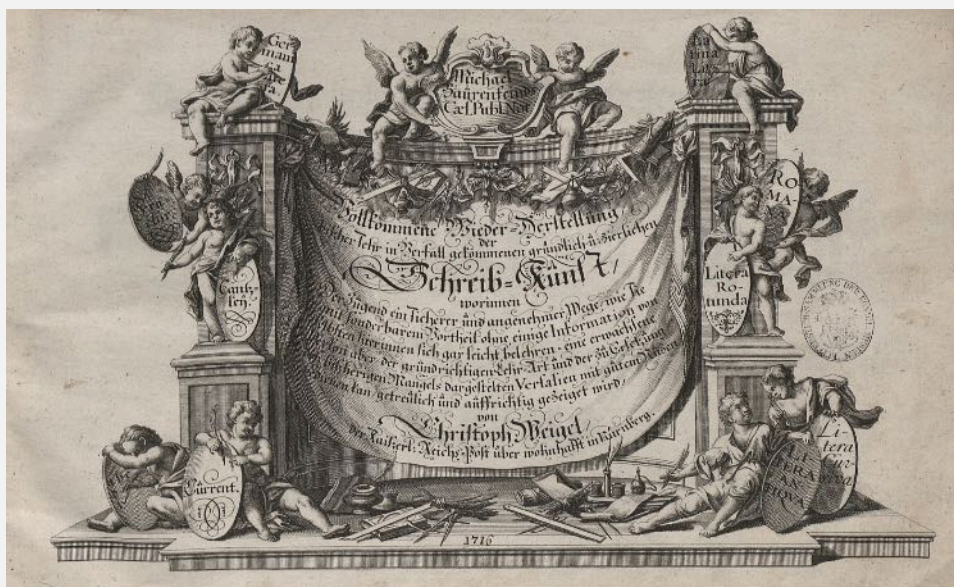 Ger-
mani
ca
recta.
Michael
Baurenfeinds
Cæl. Publ. Nor.
Latina
Vollkommene Wieder-Herstellung/
der
bisher sehr in Verfall gekommenen gründlich u: zierlichen
Schreib-Künst/
worinnen
Der Jugend ein sicherer und angenehmer Wege, wie Sie
mit sonderbarem Vortheil ohne einige Information von
selbsten hierinnen sich gar leicht belehren, eine erwachsene
Person aber der gründrichtigen Lehr-Art und der zu Ersetzung
bisherigen Mangels dargestelten Versalien mit gutem Nutzen
kan/getreülich und aüffrichtig gezeiget wird/
von
Christoph Weigel/
der Kaiserl: Reichs-Post über wohnhafft in Nürnberg.
Cantz-
leÿ.
RO
MA-
NA
Litera
Ro-
tunda
Current.
LI
TERA
AN-
TIQVA
Litera
1716